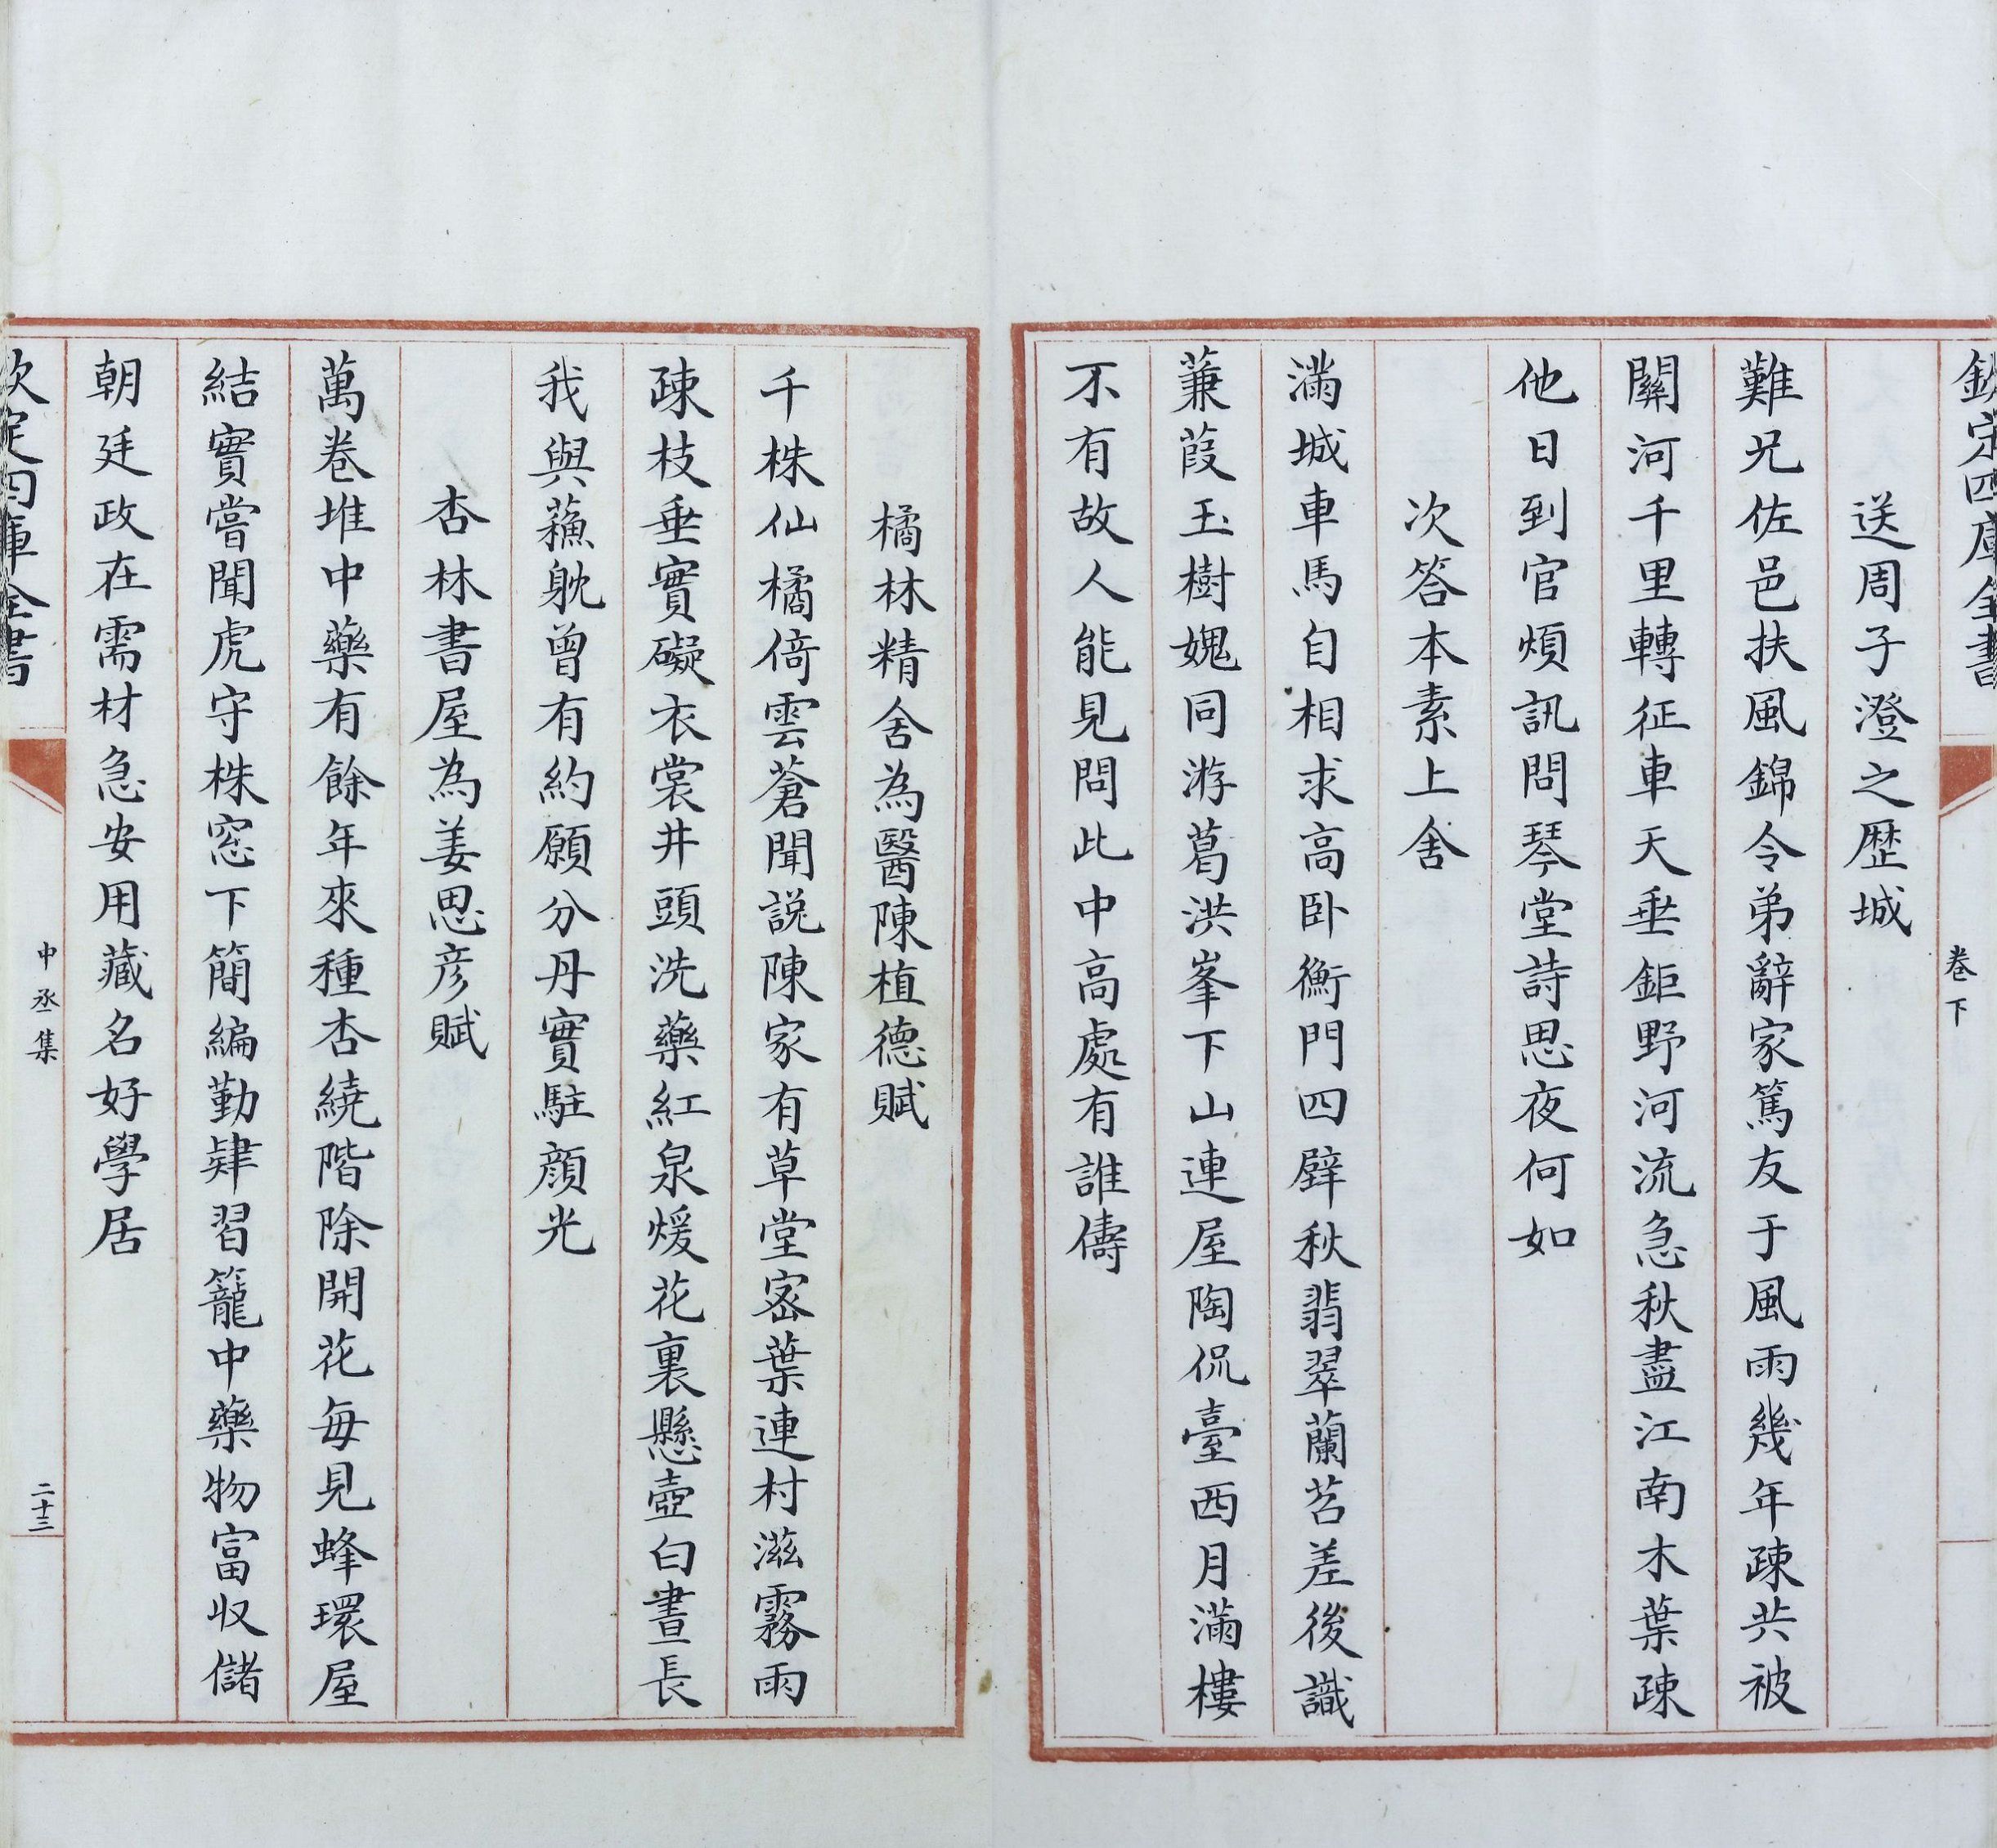 欽定四庫全書
卷下
送周子澄之歴城
難兄佐邑扶風錦令弟辭家篤友于風雨幾年疎共被
關河千里轉征車天垂鉅野河流急秋盡江南木葉疎
他日到官煩訊問琴堂詩思夜何如
次答本素上舍
滿城車馬自相求高卧衡門四壁秋翡翠蘭苕差後識
蒹葭玉樹媿同游葛洪峯下山連屋陶侃臺西月滿樓
不有故人能見問此中高處有誰儔
橘林精舍為醫陳植德賦
千株仙橘倚雲蒼聞説陳家有草堂宻葉連村滋霧雨
疎枝垂實礙衣裳井頭洗藥紅泉煖花裏懸壺白晝長
我與蘓躭曾有約願分丹實駐顔光
杏林書屋為姜思彦賦
萬卷堆中藥有餘年來種杏繞階除開花每見蜂環屋
結實嘗聞虎守株窓下簡編勤肄習籠中藥物富収儲
朝廷政在需材急安用藏名好學居
欽定四庫全書
中丞集
二十三